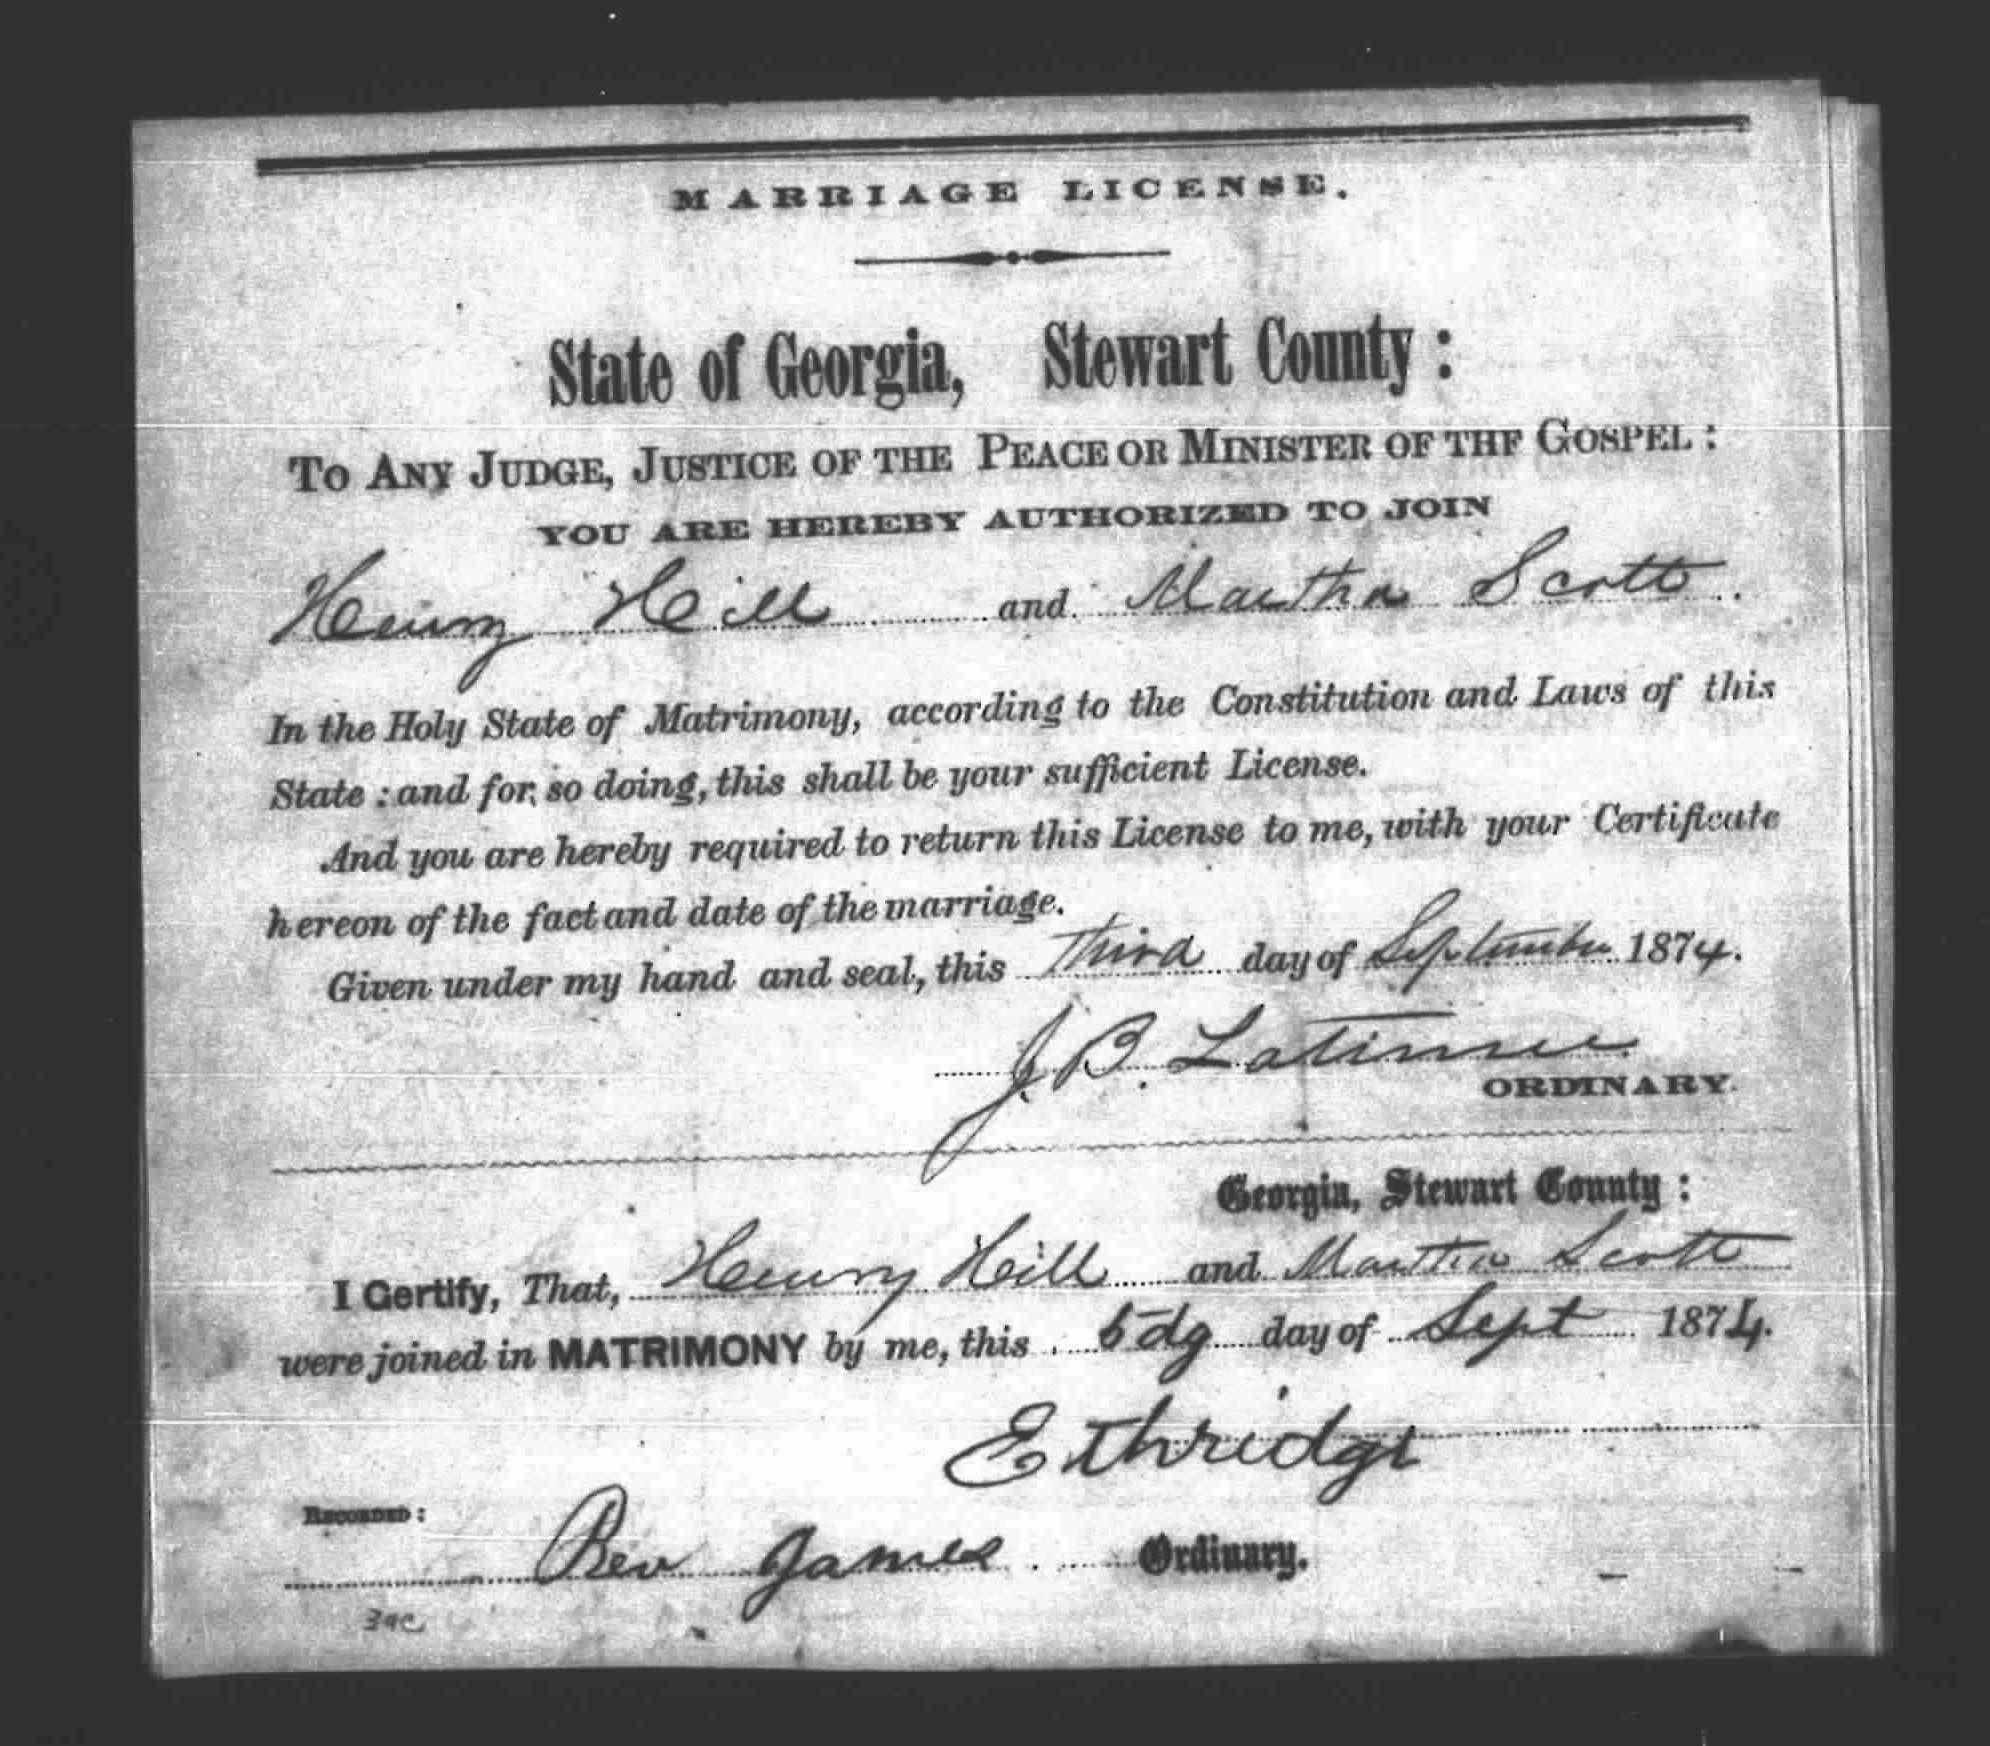 MARRIAGE LICENSE.
State of Georgia, Stewart County:
To Any Judge, Justice of the Peace or Minister of the Gospel:
YOU ARE HEREBY AUTHORIZED TO JOIN
Henry Hill and Martha Scott.
In the Holy State of Matrimony, according to the Constitution and Laws of this
State: and for so doing, this shall be your sufficient License.
And you are hereby required to return this License to me, with your Certificate
hereon of the fact and date of the marriage.
Given under my hand and seal, this Third day of September 1874.
J. B. Latimer
ORDINARY.
Georgia, Stewart County:
I Certify, That, Henry Hill and Martha Scott
were joined in MATRIMONY by me, this 5 day of Sept 1874.
Ethridge
Recorded:
Rev James Ordinary.